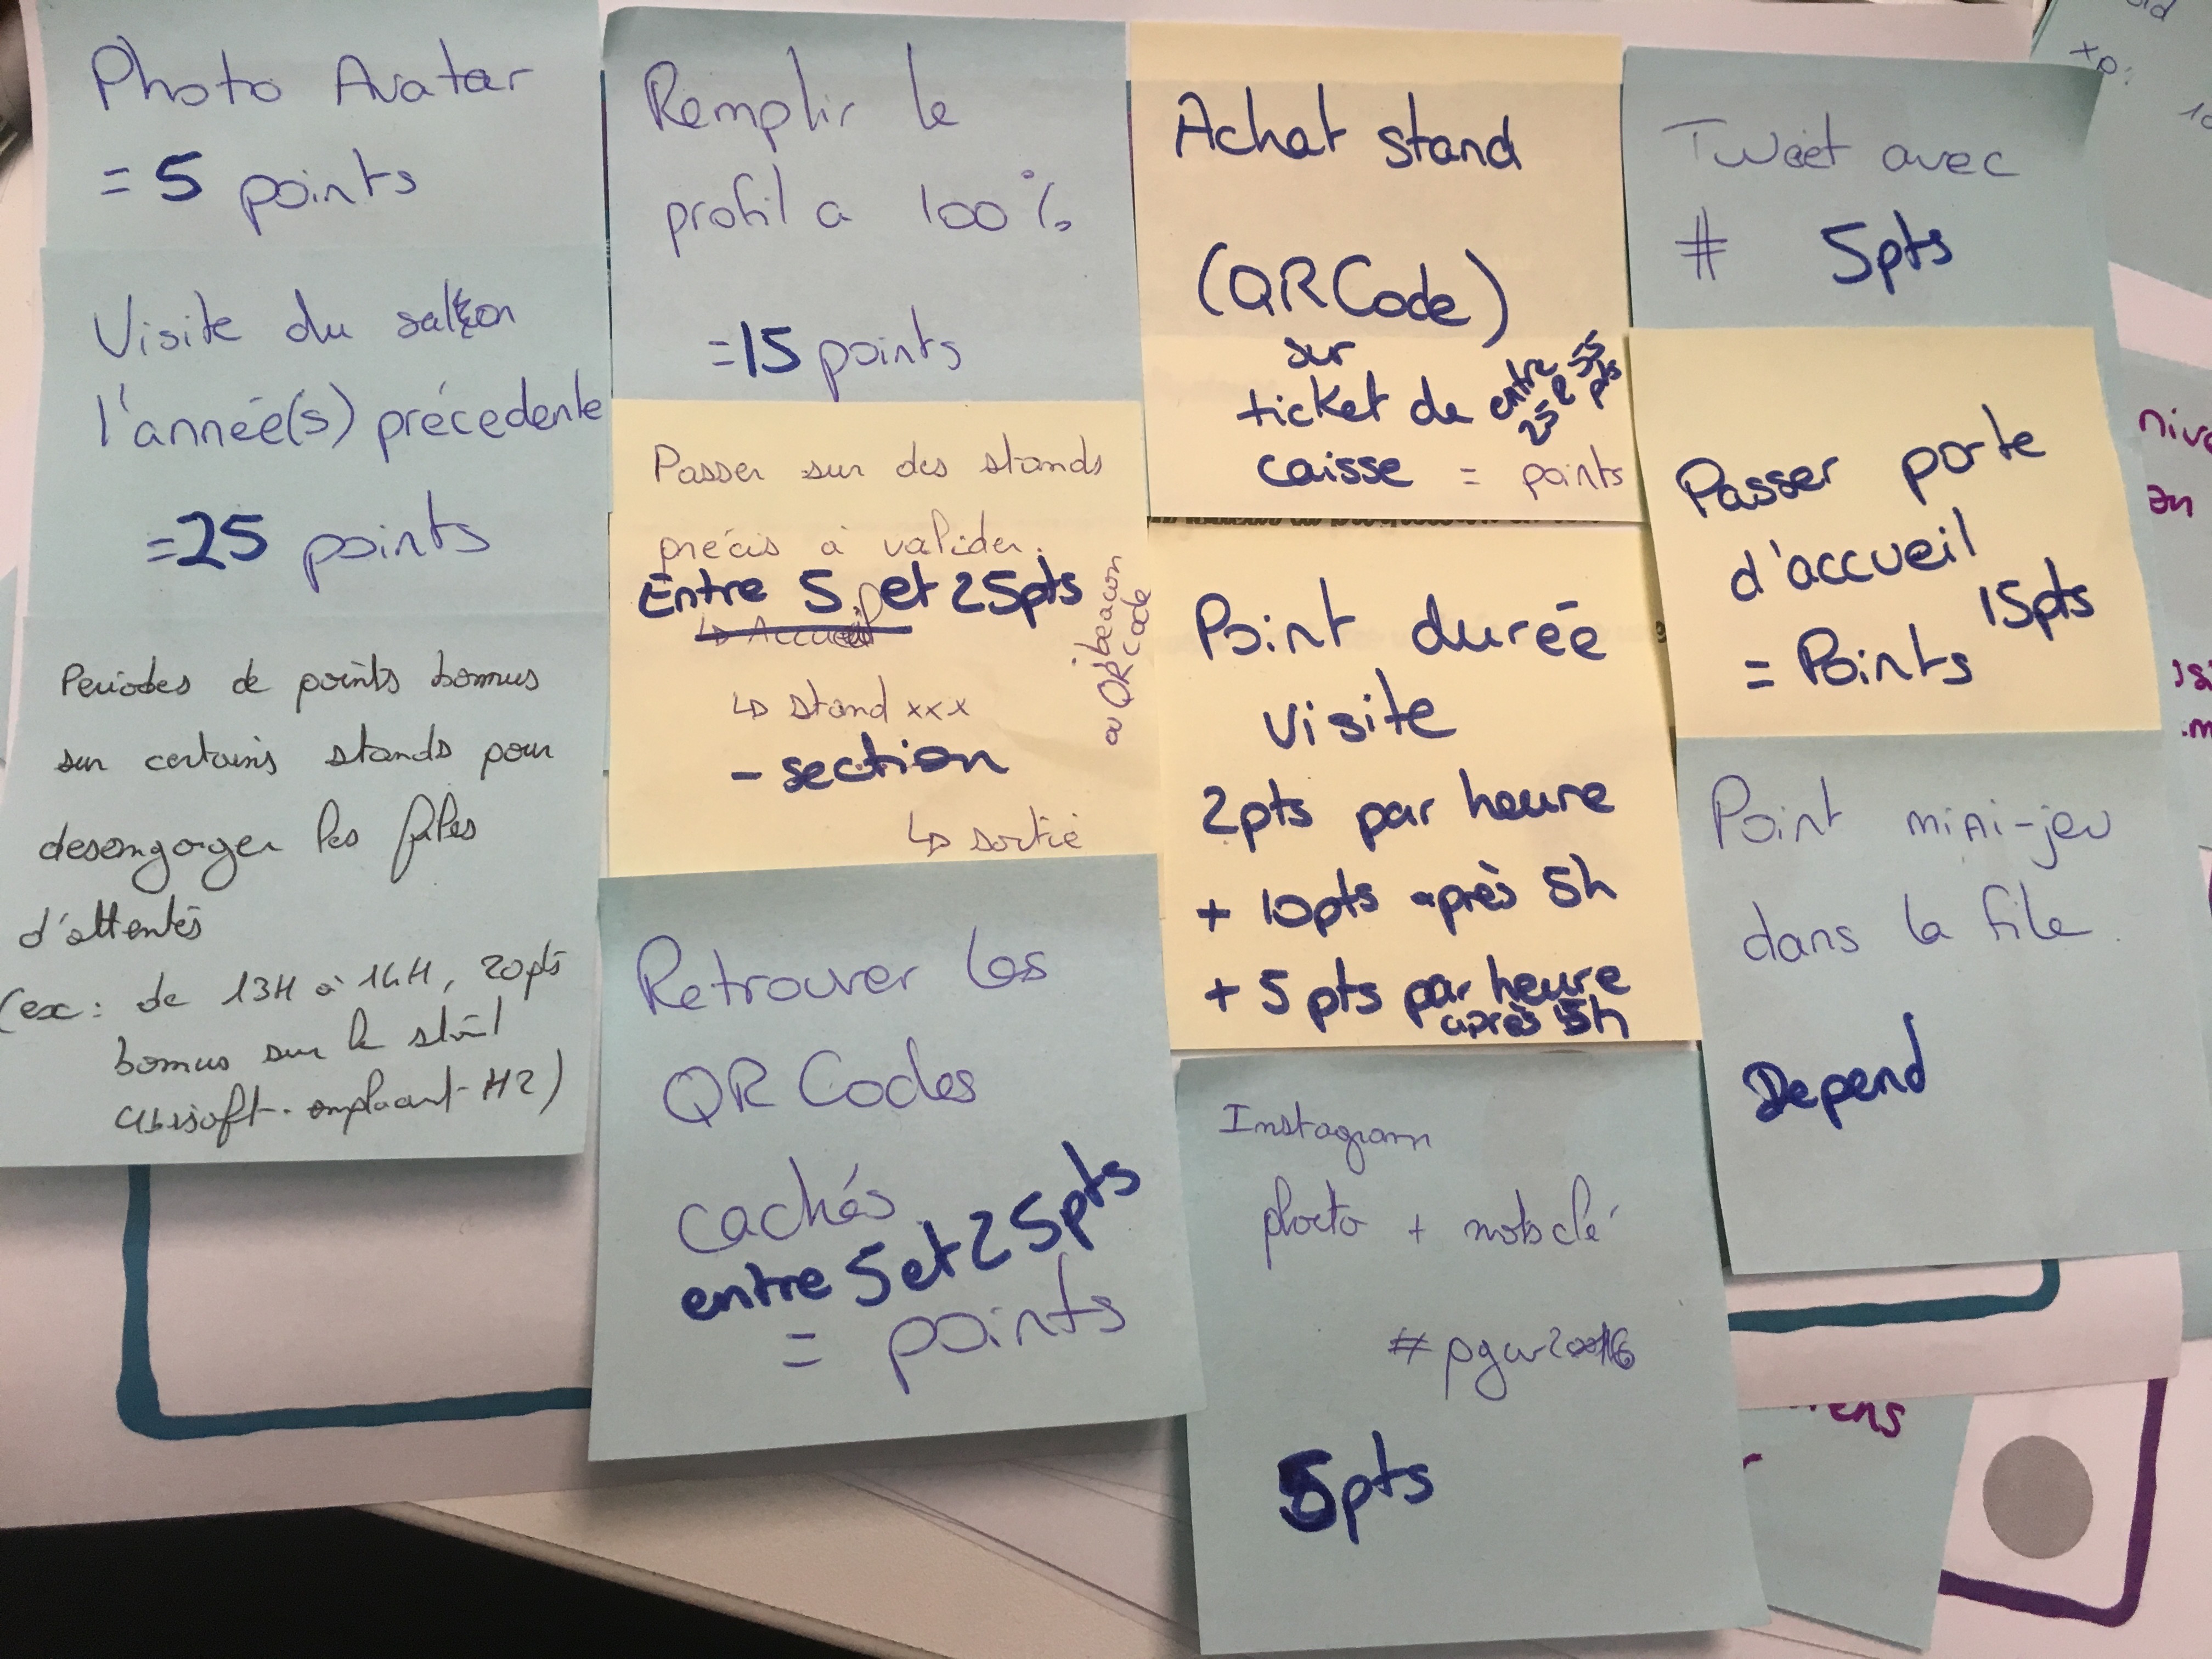 Photo Avatar
= 5 points
Visite du salon
l'année(s) précedente
= 25 points
Periodes de points bonus
sur certains stands pour
desengorger les files
d'attentes
(ex: de 13H à 14H, 20pts
bonus sur le
Ubisoft. H2)
Remplir le
profil a 100%
= 15 points
Passer sur des stands
précis à valider.
Entre 5 et 25pts
↳ Accueil
↳ stand xxx
- section
↳ sortie
ibeacon
ou QR code
Retrouver les
QR Codes
cachés
entre 5 et 25pts
= points
Achat stand
(QR Code)
sur
ticket de
caisse = points
entre
25 et 55
pts
Point durée
visite
2pts par heure
+ 10pts après 5h
+ 5 pts par heure
après 5h
Instagram
photo + mots clé
#pgw2016
5pts
Tweet avec
# 5pts
Passer porte
d'accueil
= Points 15pts
Point mini-jeu
dans la file
Depend
xp: